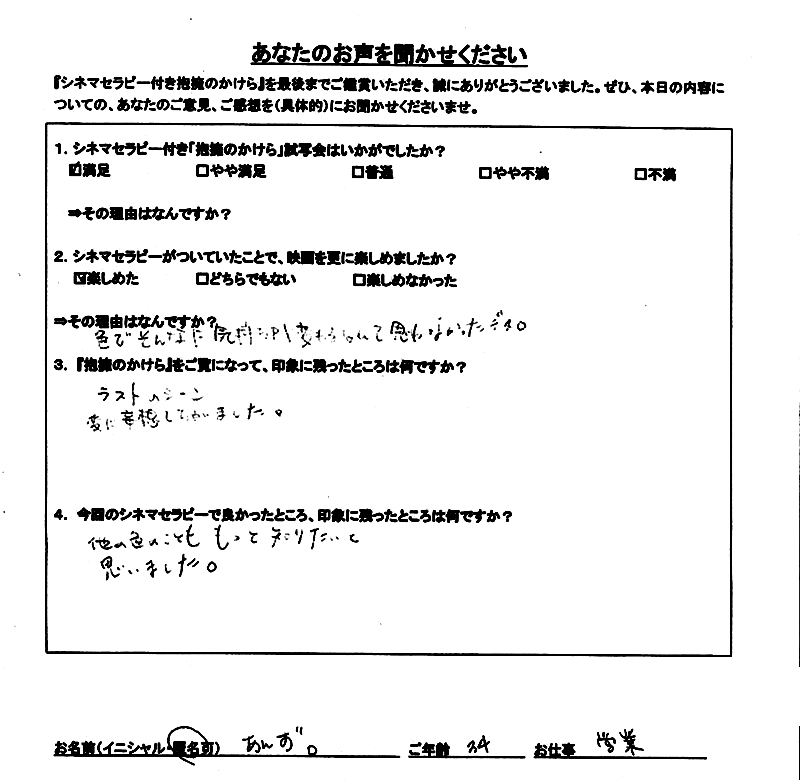 あなたのお声を聞かせください
『シネマセラピー付き抱擁のかけら』を最後までご鑑賞いただき、誠にありがとうございました。ぜひ、本日の内容に
ついての、あなたのご意見、ご感想を(具体的)にお聞かせくださいませ。
1. シネマセラピー付き「抱擁のかけら」試写会はいかがでしたか？
☑満足 □やや満足 □普通 □やや不満 □不満
⇒その理由はなんですか？
2. シネマセラピーがついていたことで、映画を更に楽しめましたか？
☑楽しめた □どちらでもない □楽しめなかった
⇒その理由はなんですか？
色でそんなに気持ちが変わるなんて思わなかったデス。
3. 『抱擁のかけら』をご覧になって、印象に残ったところは何ですか？
ラストのシーン
変に して ました。
4. 今回のシネマセラピーで良かったところ、印象に残ったところは何ですか？
他の色のことももっと知りたいと
思いました。
お名前(イニシャル・匿名可) あんず。 ご年齢 34 お仕事 営業